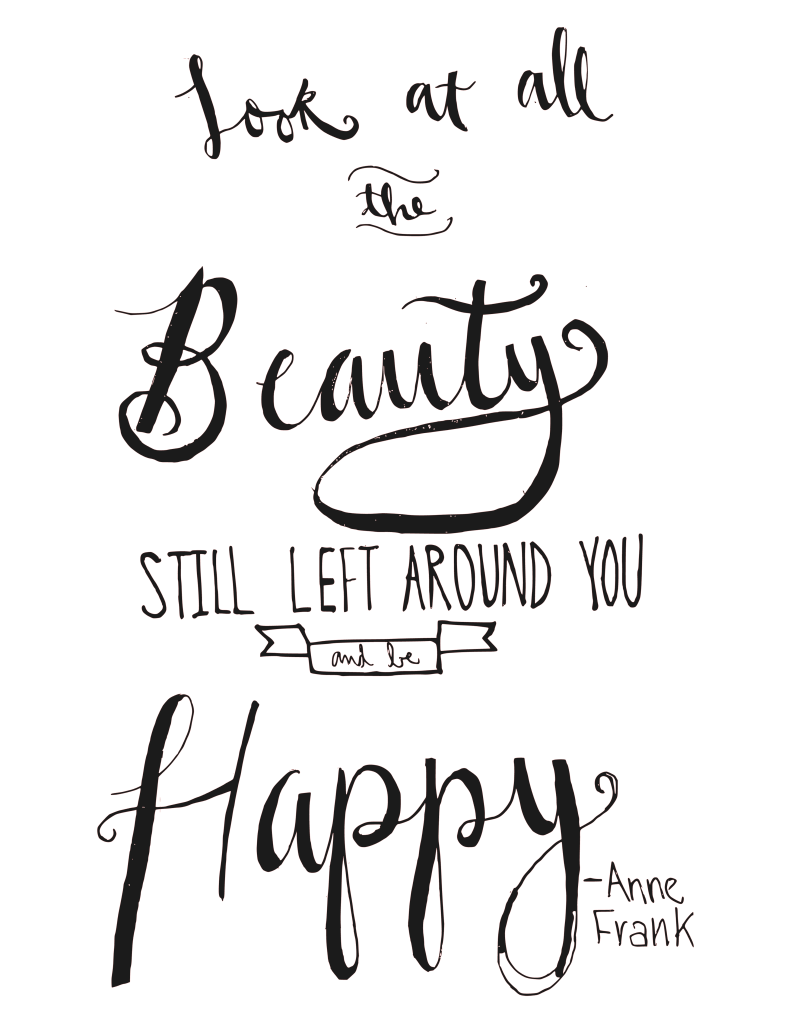 Look at all
the
Beauty
STILL LEFT AROUND YOU
and be
Happy
-Anne
Frank